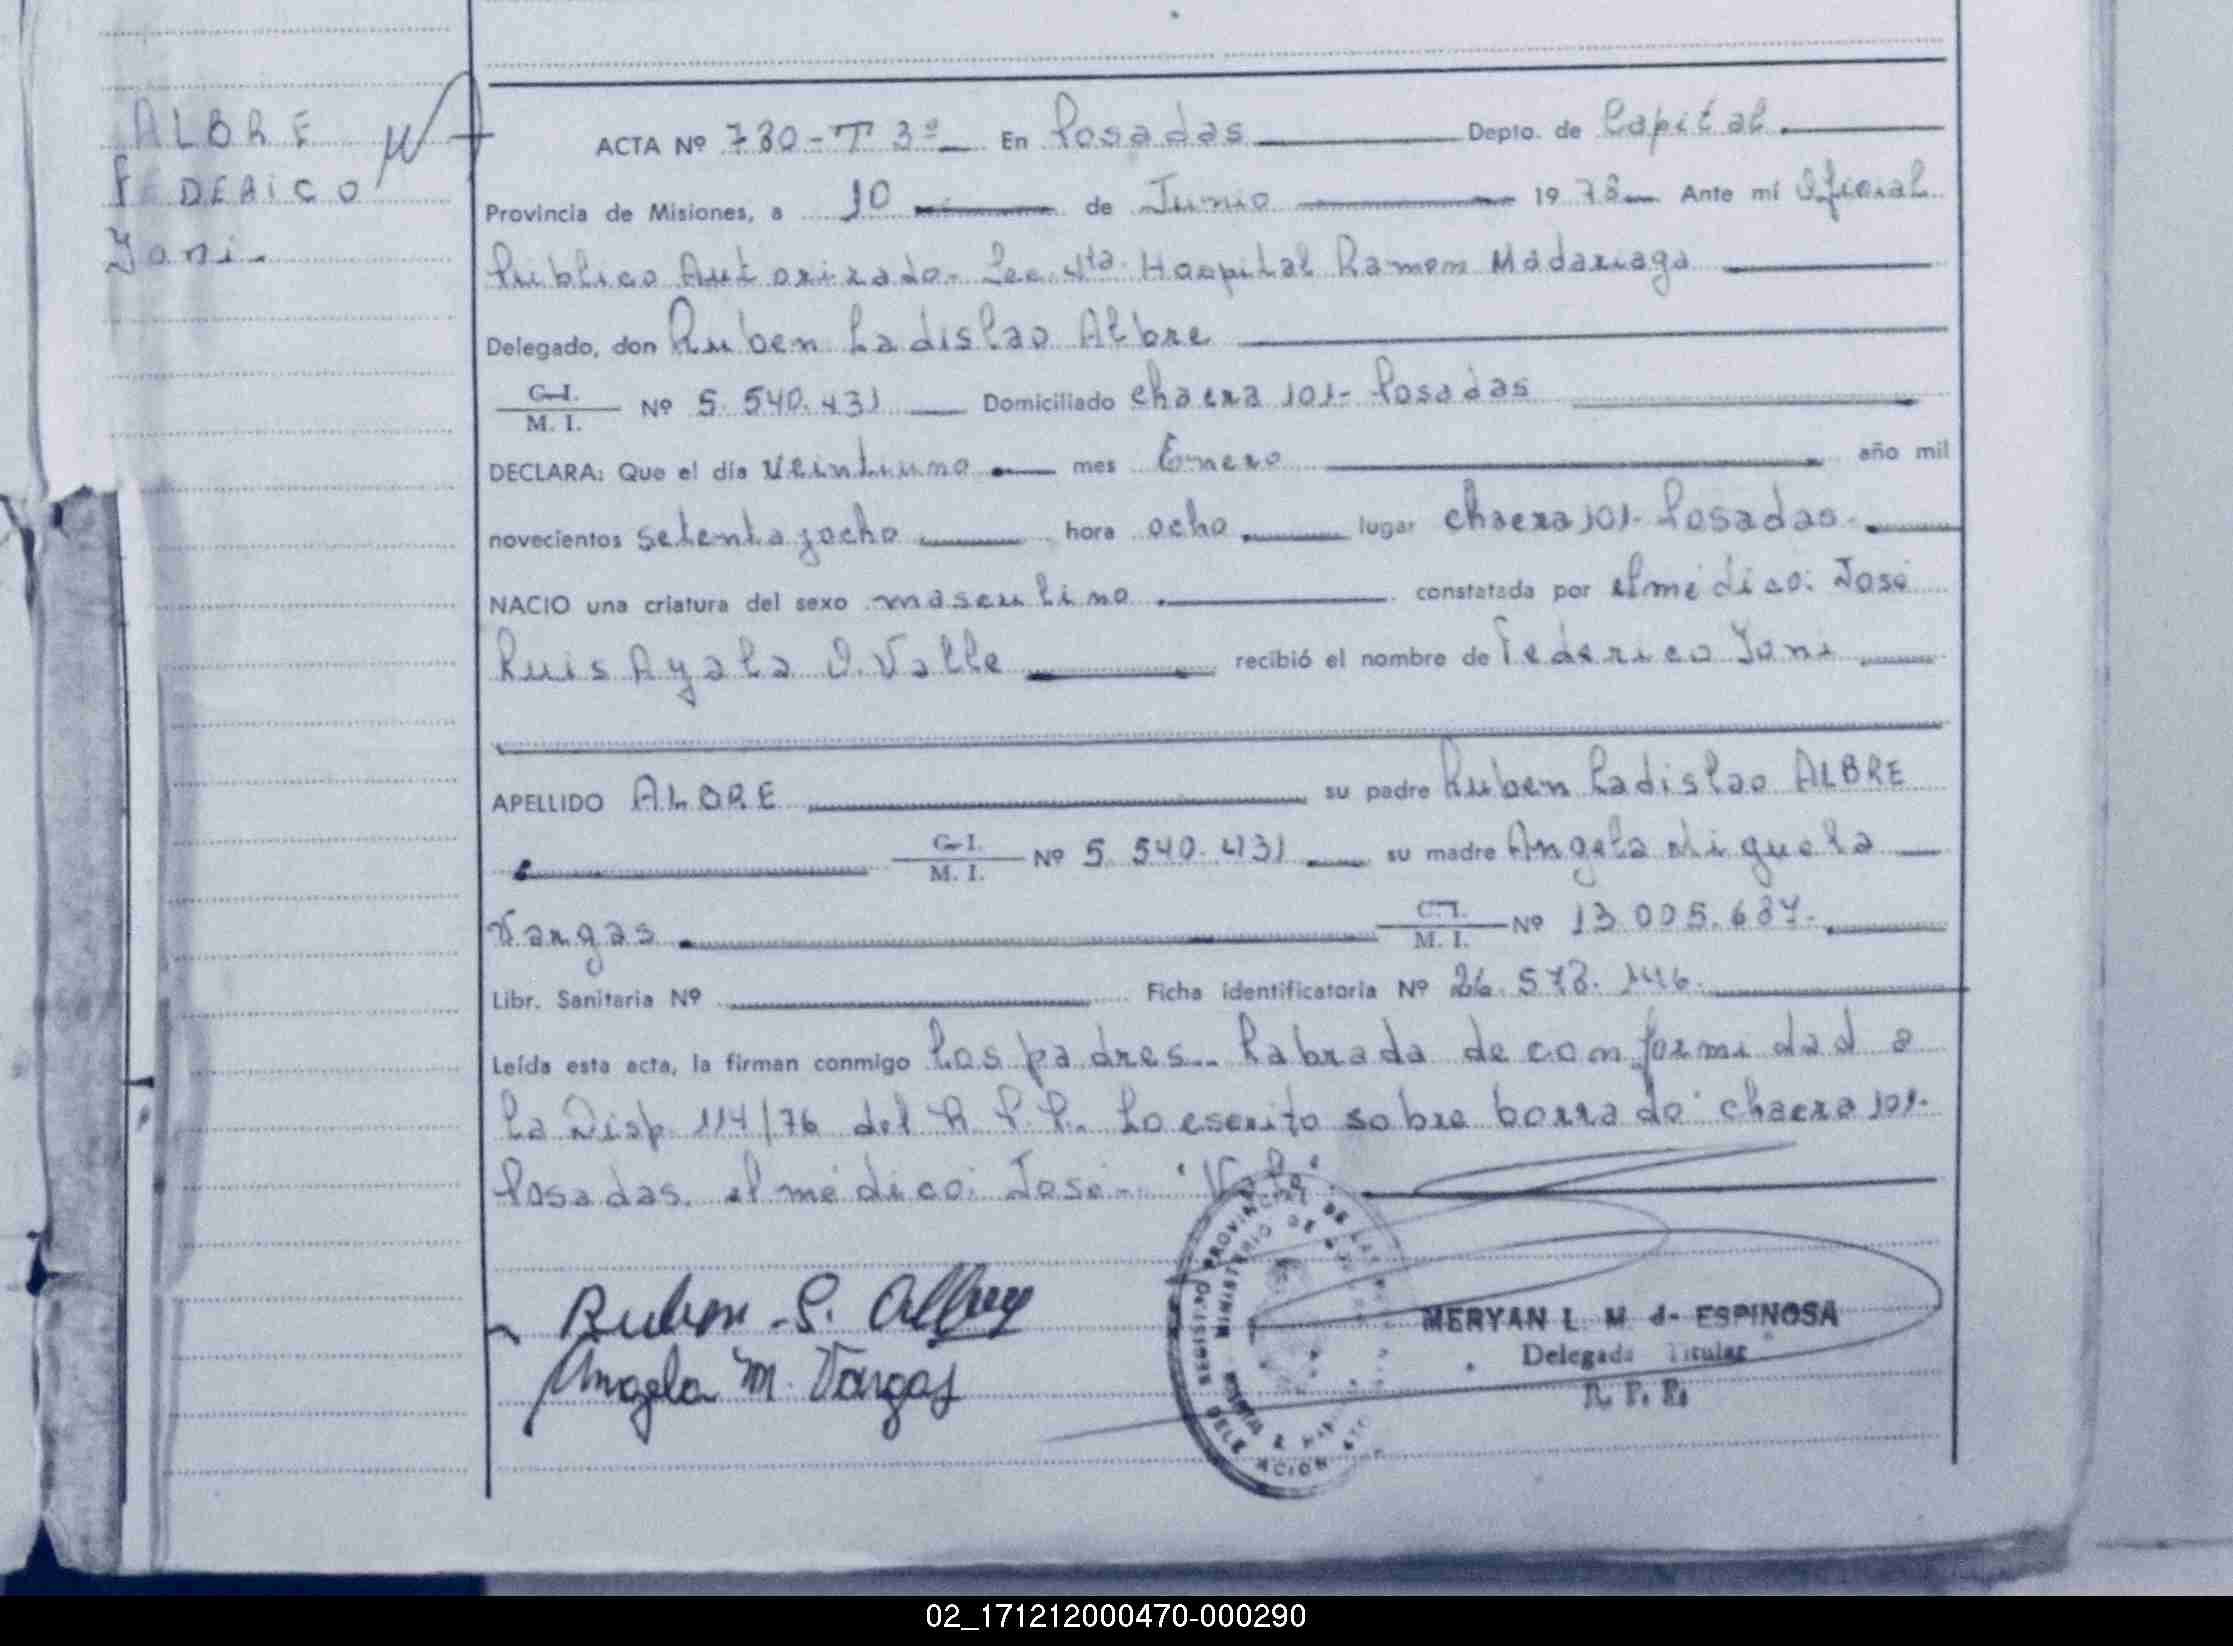 ALBRE
FEDERICO
Joni.
ACTA Nº 730-T 3º En Posadas Depto. de Capital.
Provincia de Misiones, a 10 de Junio 1978 Ante mí Oficial
Publico Autorizado- Sec. 4ta. Hospital Ramon Madariaga
Delegado, don Ruben Ladislao Albre
C.I. M. I. Nº 5.540.431 Domiciliado chacra 101- Posadas
DECLARA: Que el día veintiuno mes Enero año mil
novecientos setenta y ocho hora ocho lugar chacra 101- Posadas.
NACIO una criatura del sexo masculino constatada por el médico: José
Luis Ayala O. Valle recibió el nombre de Federico Joni
APELLIDO ALBRE su padre Ruben Ladislao ALBRE
C.I. M. I. Nº 5.540.431 su madre Angela Miguela
Vargas C.I. M. I. Nº 13.005.687.
Libr. Sanitaria Nº Ficha identificatoria Nº 26.578.146.
Leída esta acta, la firman conmigo los padres.. Labrada de conformidad a
la Disp. 114/76 del R. P. P.. Lo escrito sobre borrado: chacra 101.
Posadas. el médico: José... Vale.
Ruben L. Albre
Angela M. Vargas
REGISTRO PROVINCIAL DE LAS
MINISTERIO DE
DELEGACION
MERYAN L. M. d- ESPINOSA
Delegada Titular
R. P. P.
02_171212000470-000290